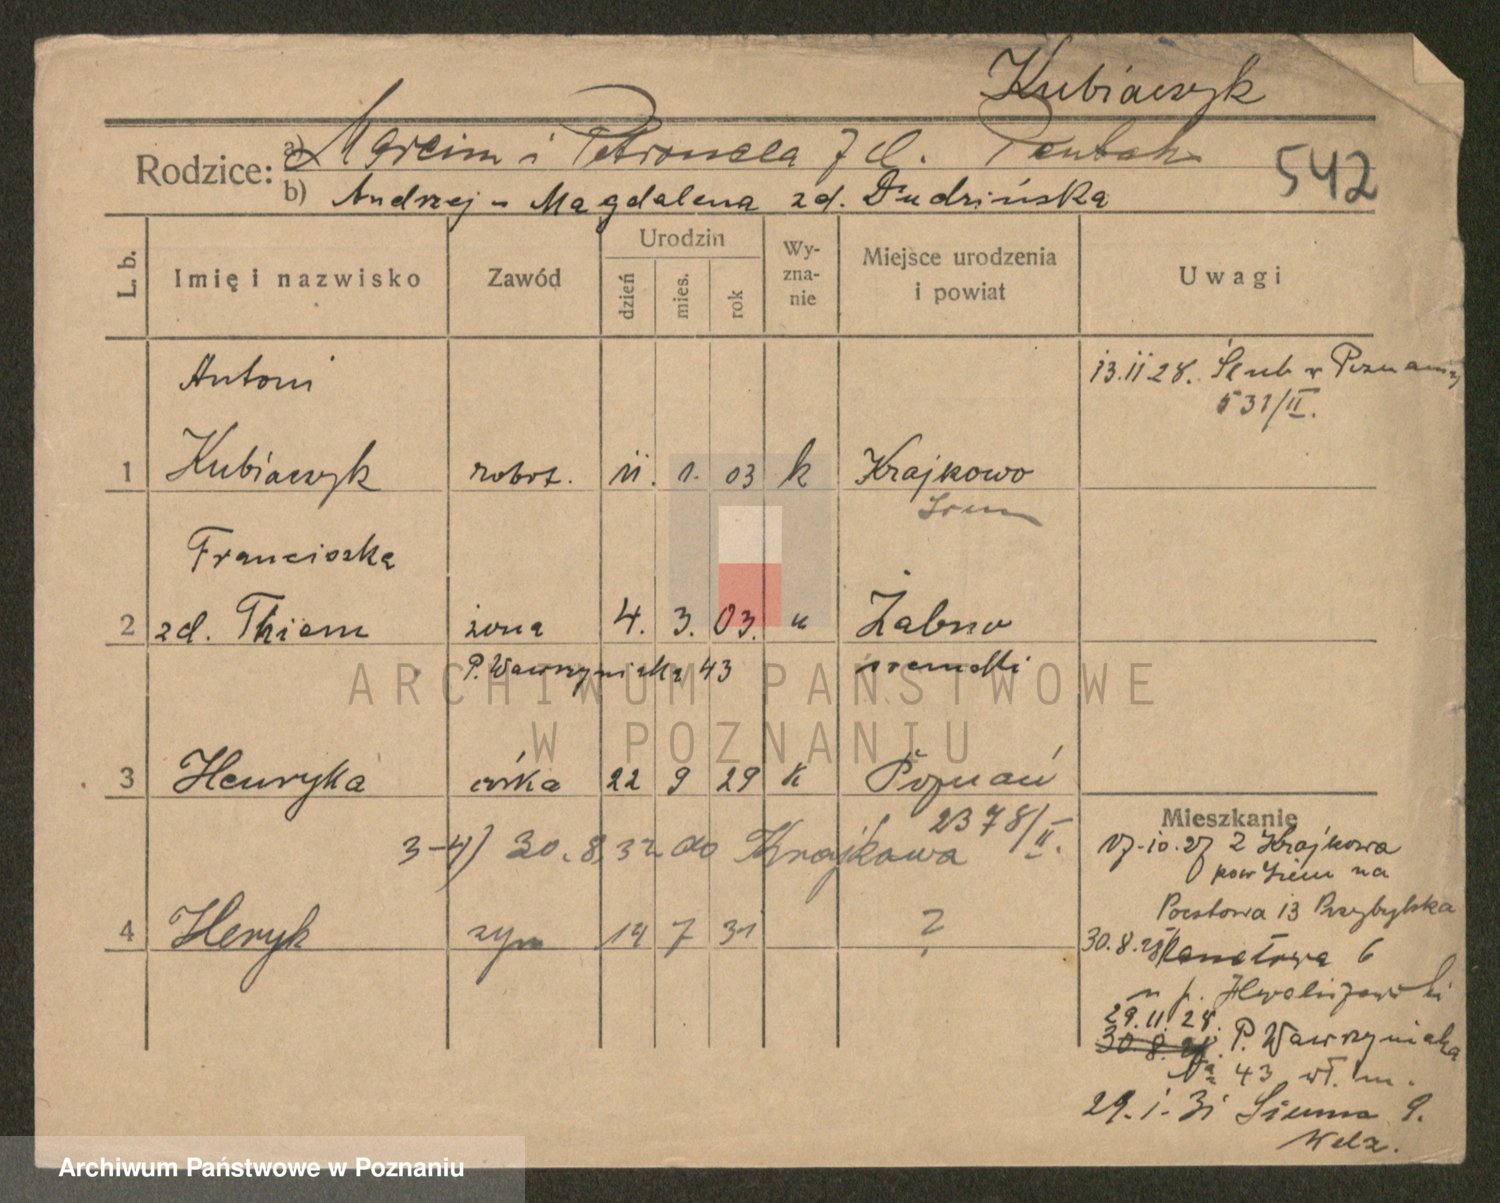 Kubiaczyk
Rodzice: a) Marcin i Petronela z d.
b) Andrzej - Magdalena zd. Dudzińska
542
L. b. Imię i nazwisko Zawód Urodzin dzień mies. rok Wyznanie Miejsce urodzenia i powiat Uwagi
Antoni
13.II 28. Ślub w Poznaniu
531/II.
1 Kubiaczyk robot. 11. 1. 03 k Krajkowo
Śrem
Franciszka
2 zd. Thiem żona 4. 3. 03. " Żabno
P. Wawrzyniaka 43 śremski
3 Henryka córka 22 9 29 k Poznań
2378/II.
3-4) 30.8.32 do Krajkowa
4 Henryk syn 19 7 31 ?
Mieszkanie
17.10.27 z Krajkowa
pow Śrem na
Pocztowa 13 Przybylska
30.8.28 6
u p.
29.11.28. P. Wawrzyniaka
30.8.28.
№ 43 wł. m.
29.1.31 Sienna 9.
ARCHIWUM PAŃSTWOWE
W POZNANIU
Archiwum Państwowe w Poznaniu